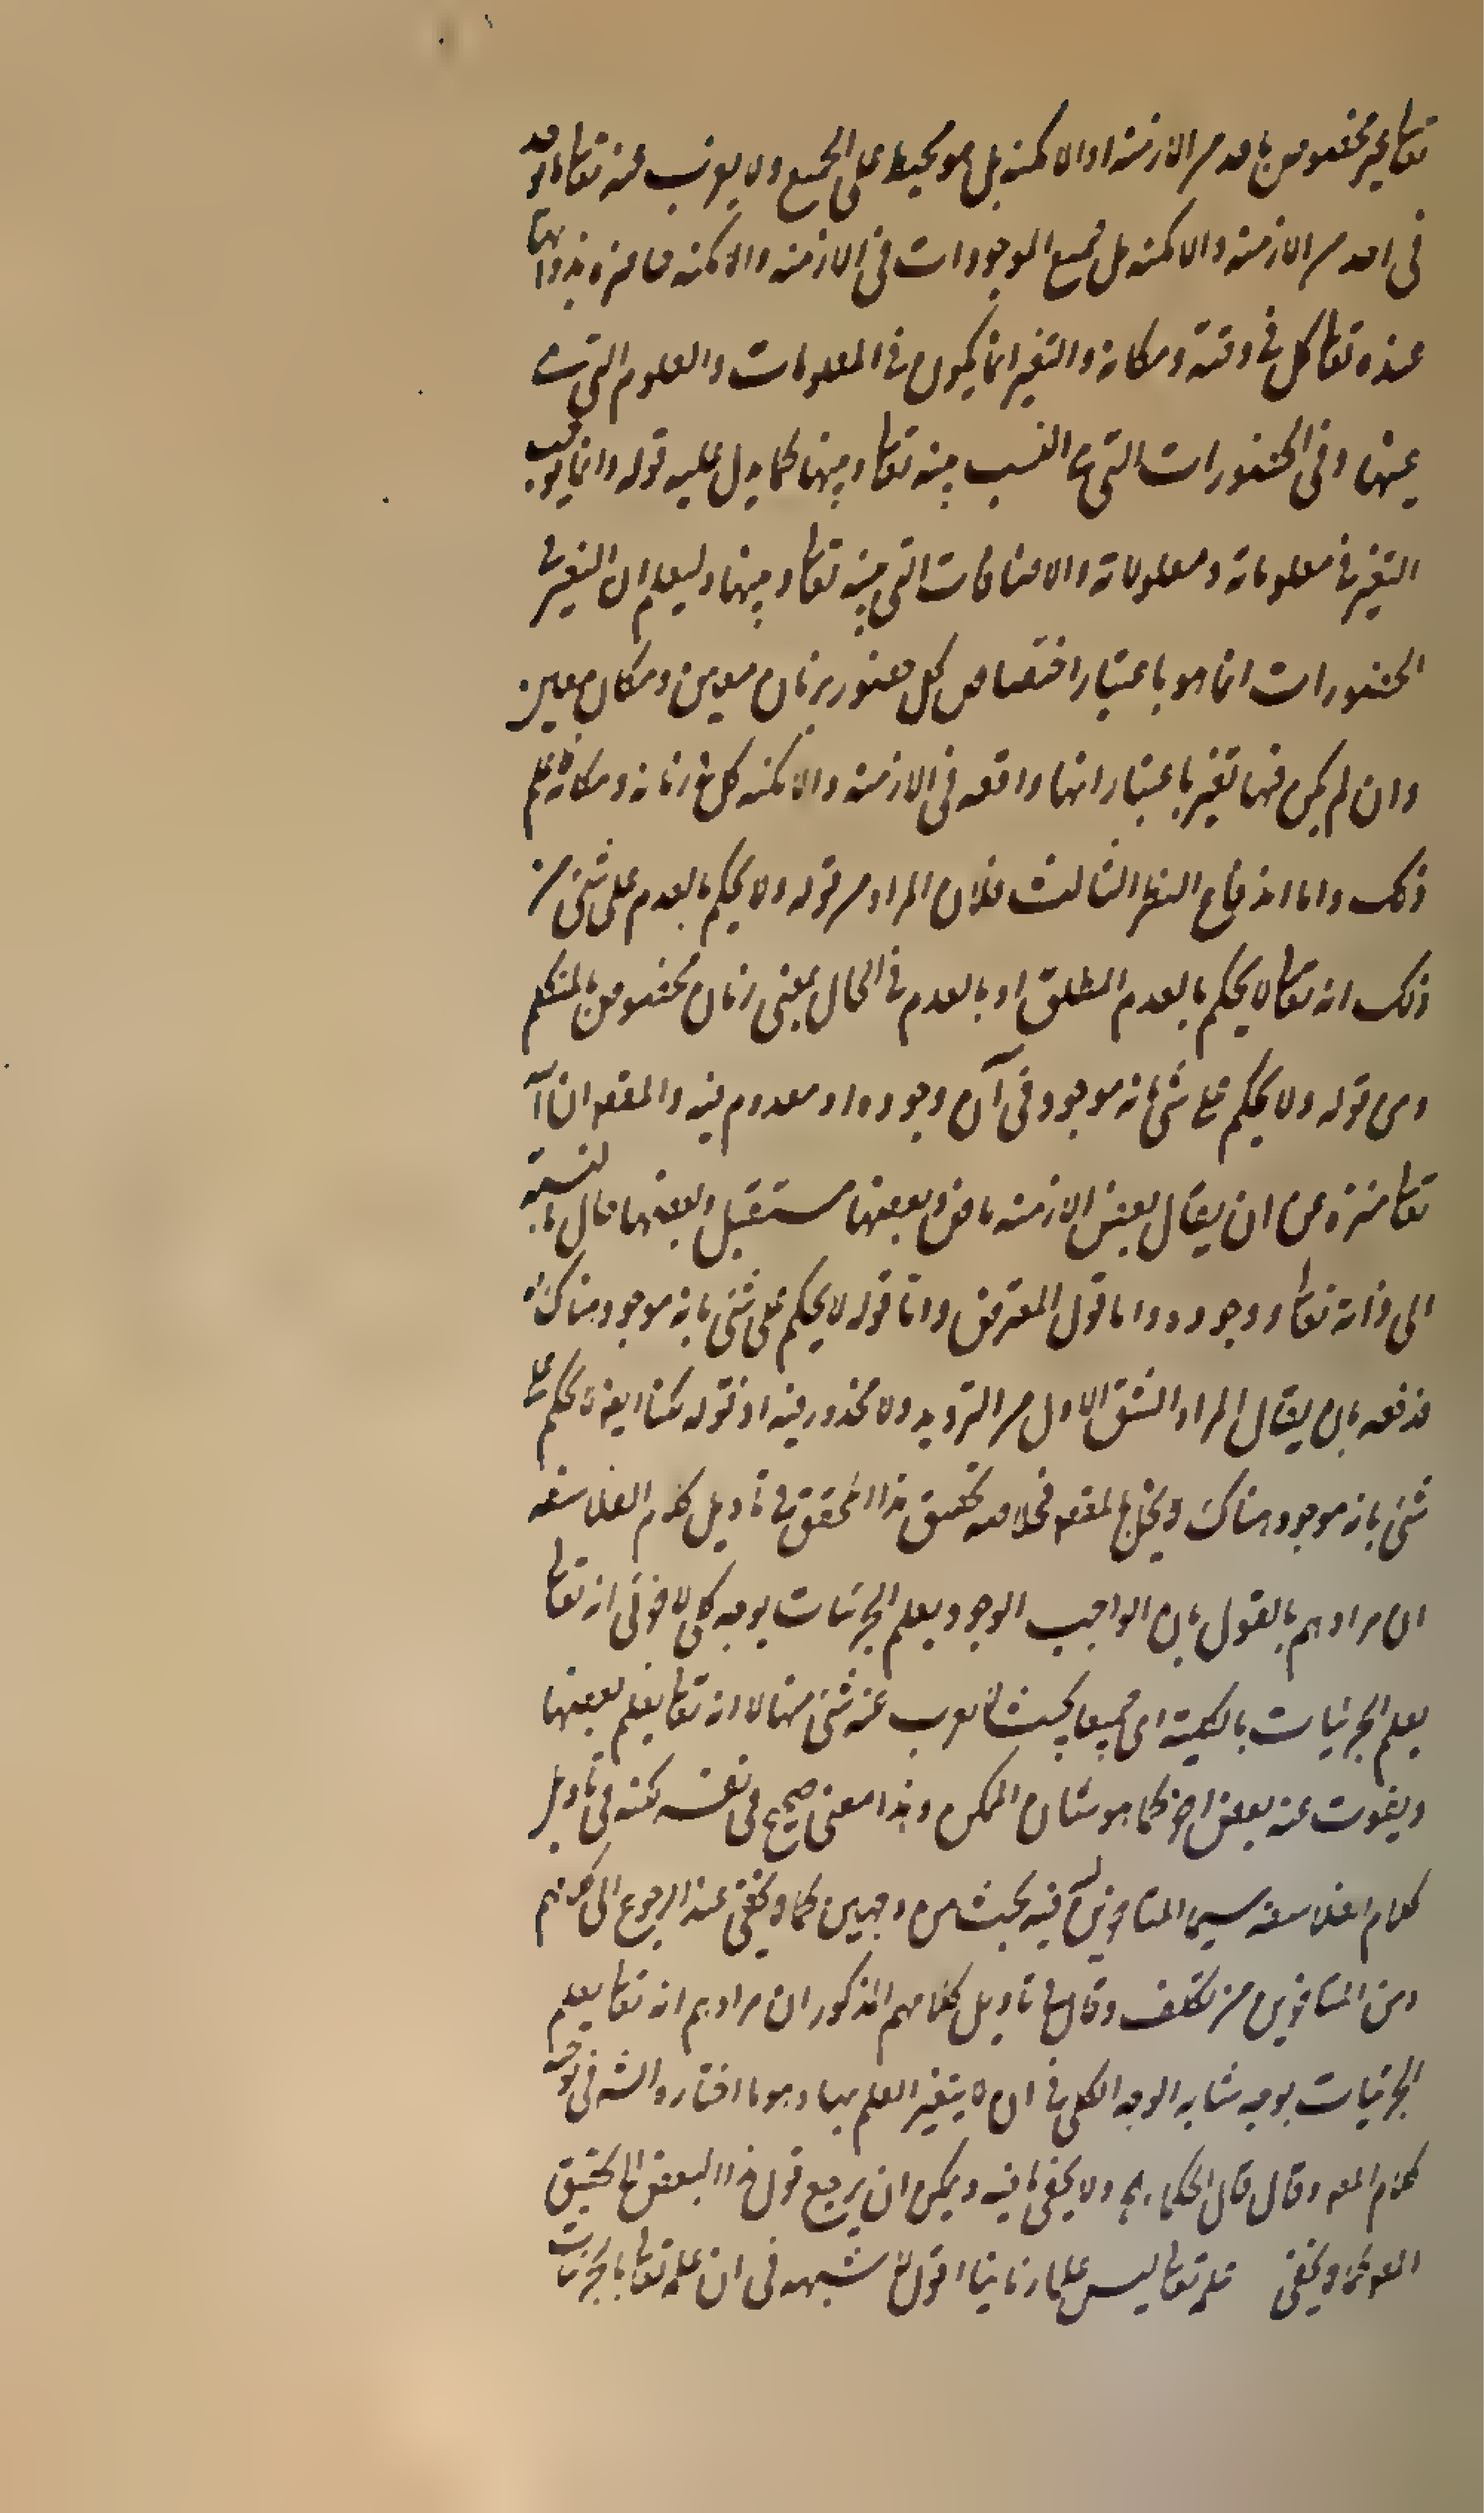 تعا غير مخصوص باحد من الازمنة او الامكنة بل هو محيط على الجميع ولا يعزب عنه تعا ما وجد
فى احد من الازمنة والامكنة بل جميع الموجودات فى الازمنة والامكنة حاضرة بذواتها
عنده تعا كل فى وقته ومكانه والتغير انما يكون فى المعلومات والعلوم التى هى
عينها وفى الحضورات التى هى النسب بينه تعا وبينها كما يدل عليه قوله وانما يوجب
التغير فى معلوماته ومعلولاته والاضافات التى بينه تعا وبينها وليعلم ان التغير فى
الحضورات انما هو باعتبار اختصاص كل حضور بزمان معين ومكان معين
وان لم يكن فيها تغير باعتبار انها واقعة فى الازمنة والامكنة كل فى زمانه ومكانه فاعلم
ذلك واما اندفاع النظر الثالث فلان المراد من قوله ولا يحكم بالعدم على شئ من
ذلك انه تعا لا يحكم بالعدم المطلق او بالعدم فى الحال بمعنى زمان مخصوص بالمتكلم
ومن قوله ولا يحكم على شئ بانه موجود فى آن وجوده او معدوم فيه والمقصود ان آنه
تعا منزه عن ان يقال بعض الازمنة ماض وبعضها مستقبل وبعضها حال بالنسبة
الى ذاته تعا ووجوده واما قول المعترض واما قوله لا يحكم على شئ بانه موجود هناك
فدفعه بان يقال المراد الشق الاول من الترديد ولا محذور فيه اذ قوله لكنا ايضا نحكم على
شئ بانه موجود هناك لا يخل بالمقصود فخلاصة تحقيق هذا المحقق فى تاويل كلام الفلاسفة
ان مرادهم بالقول بان الواجب الوجود يعلم الجزئيات بوجه كلى لا جزئى انه تعا
يعلم الجزئيات بالكلية اى جميعا بحيث لا يعزب عنه شئ منها لا انه تعا يعلم بعضها
ويفوت عنه بعض اخر كما هو شان الممكن وهذا معنى صحيح فى نفسه لكنه فى تاويل
كلام الفلاسفة سيما المتاخرين فيه بحث من وجهين كما لا يخفى عند الرجوع الى كلامهم
ومن المتاخرين من تكلف وقال فى تاويل كلامهم المذكور ان مرادهم انه تعا يعلم
الجزئيات بوجه مشابه الوجه الكلى فى ان لا يتغير العلم بها وهو ما اختاره الش فى توجيه
كلام المص وقال قال الحكماء ولا يخفى ما فيه ويمكن ان يرجع قول هذا البعض الى تحقيق
كما لا يخفى علمه تعا ليس علما زمانيا اقول لا شبهة فى ان علمه تعا بالجزئيات